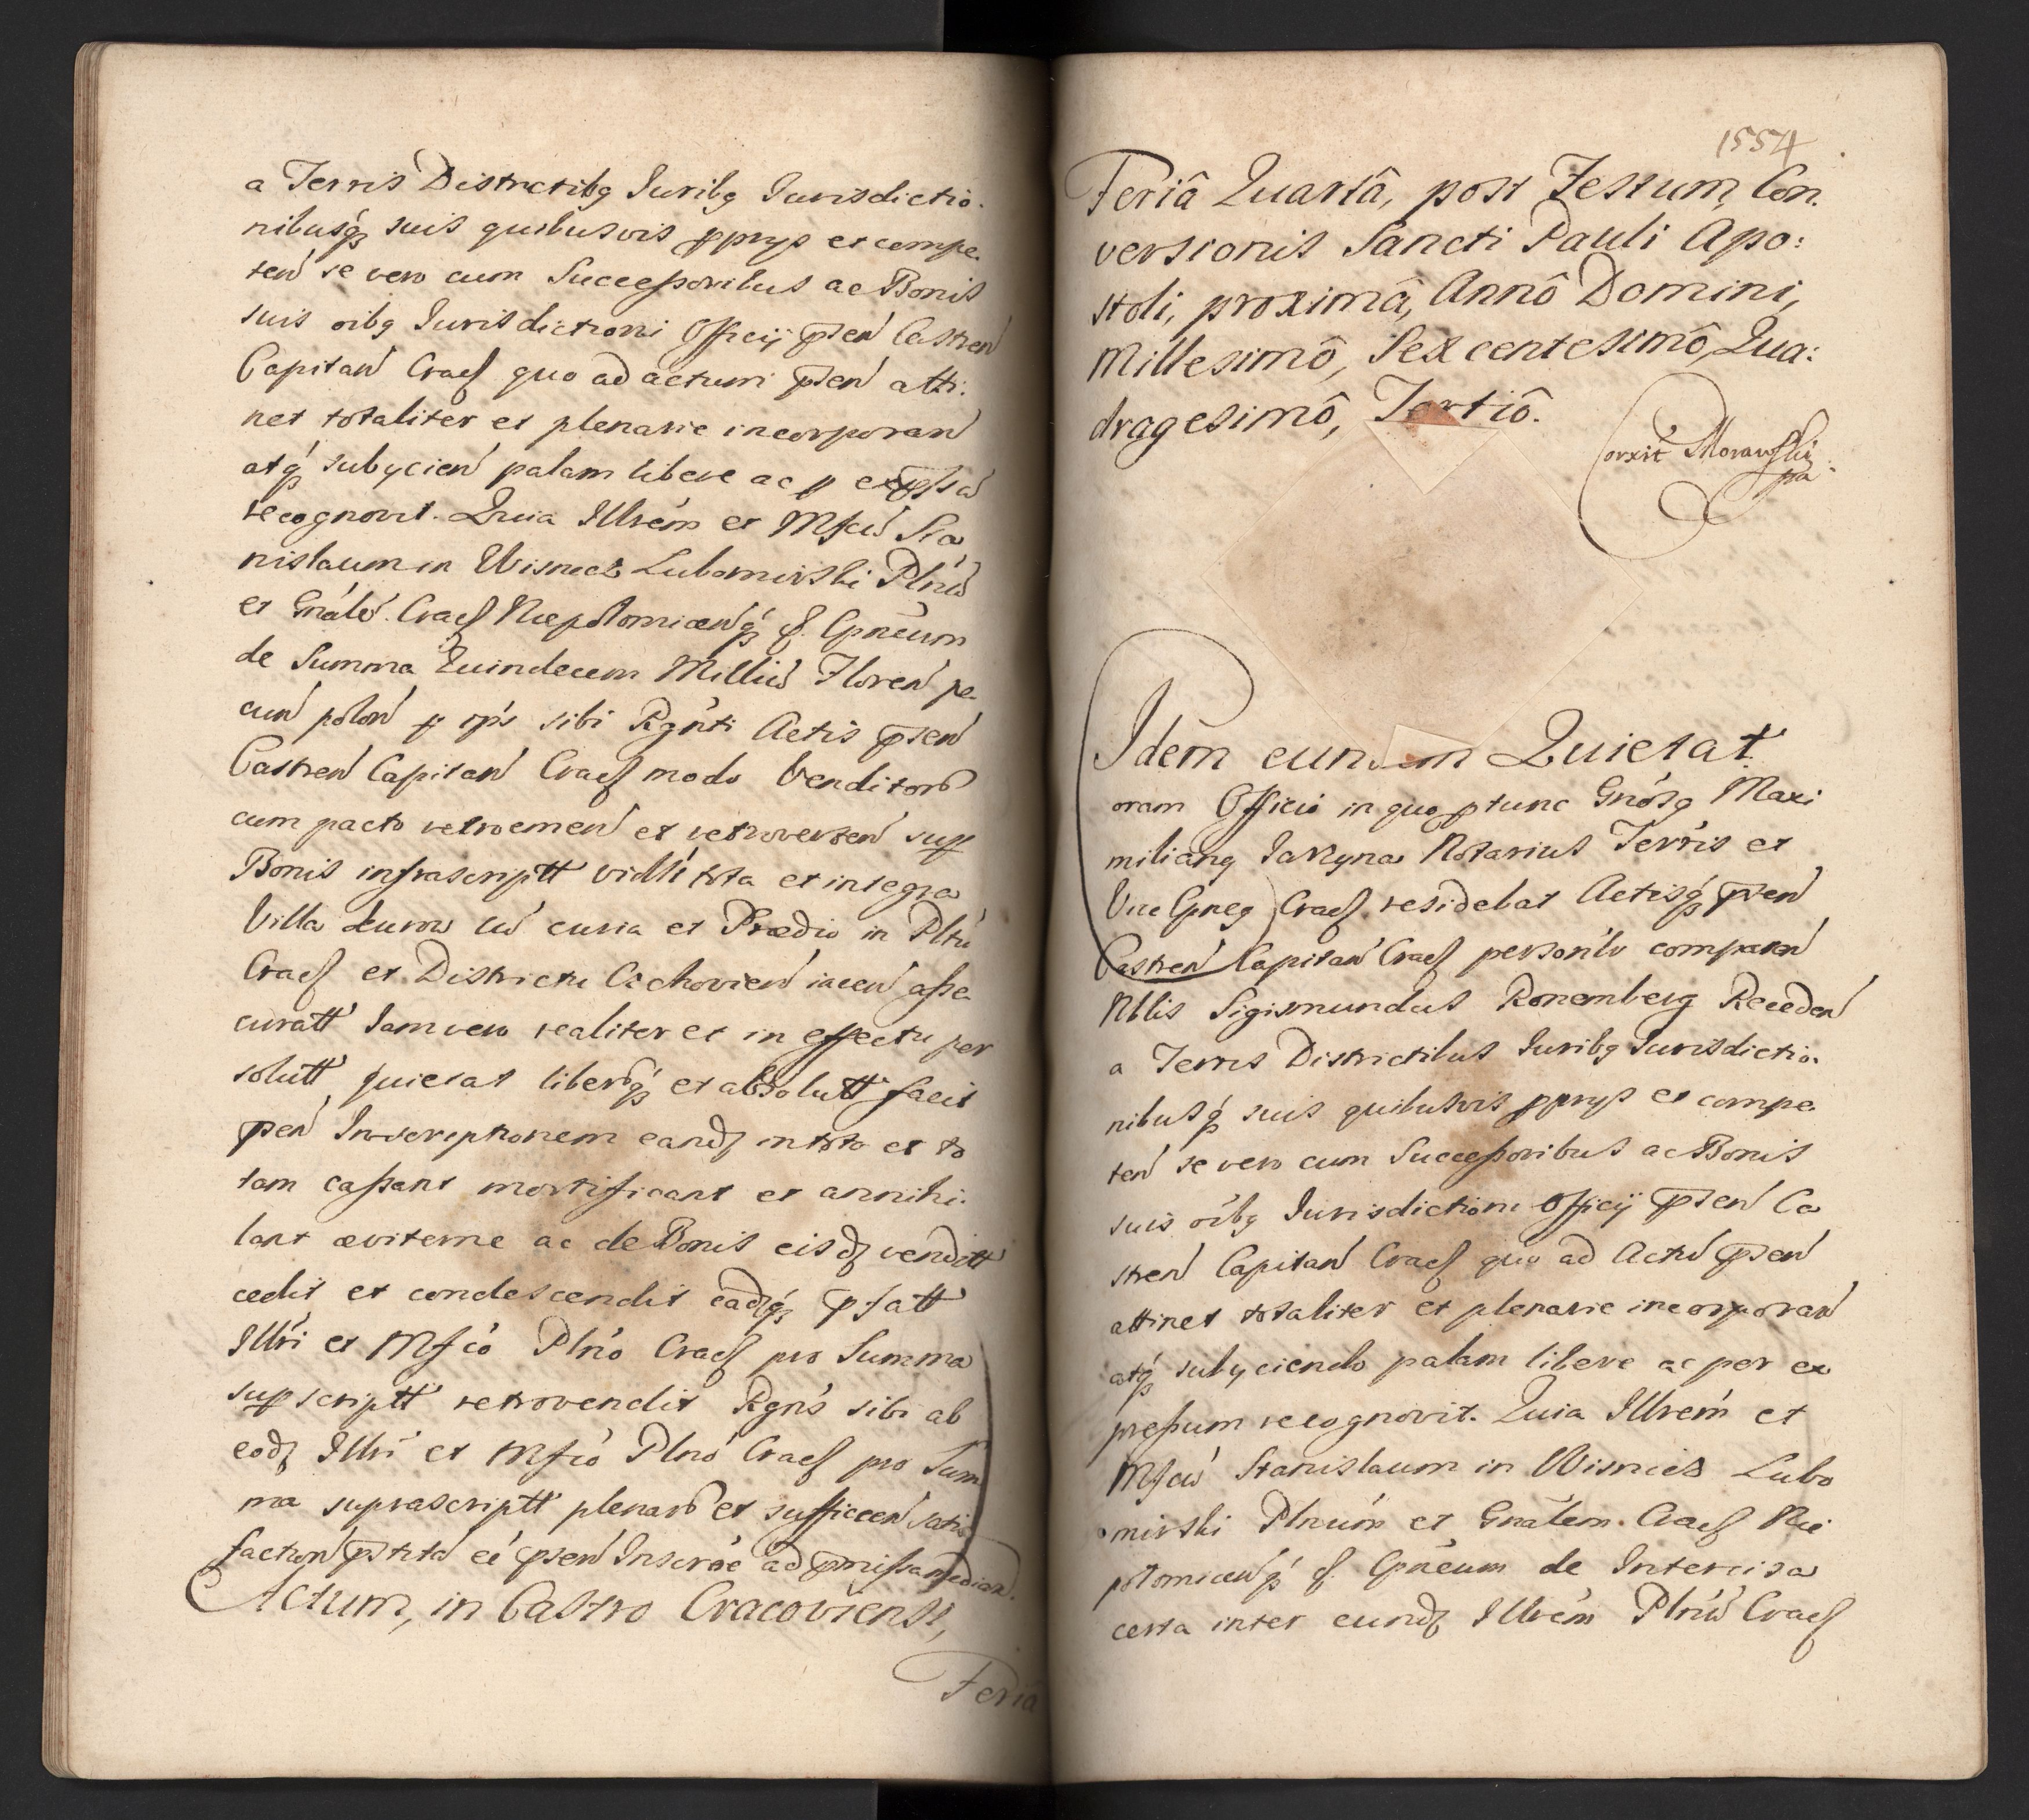 a Terris Districtibq Juribq Jurisdictio-
nibusq suis quibusvis pprys et compe-
ten se vero cum Successoribus ac Bonis
suis oibq Jurisdictioni Officij psen Castren
Capitan Cracs quo ad actum psen atti:
net totaliter et plenarie incorporan
atq subycien palam libere ac p expssu
recognovit. Quia Illrem et Mfcu Sta
nislaum in Wisnicz Lubomirski Plnu
et Gnale. Cracs Niepolomicenq
de Summa Quindecem Milliu Floren pe-
cun polon p ips sibi Rgnti Actis psen
Castren Capitan Cracs modo Venditoro
cum pacto retroemen et retroverten sup
Bonis infrascriptt vidlt tota et integra
Villa cu curia et Prædio in Pltu
Cracs et Districtu iacen asse
curatt Jam vero realiter et in effectu per
solutt quietat liberq et absolutt facit
psen Inscriptionem eandz in toto et to
tam cassant mortificant et annihi-
lant æviterne ac de Bonis eisdz venditt
cedit et condescendit eadzq pfatt
Illri et Mfco Plno Cracs pro Summa
supscriptt retrovendit Rgns sibi ab
eodz Illri et Mfco Plno Cracs pro Sum
ma suprascriptt plenaro et sufficeen satis
faction pstita ee psen Inscrõe ad pmissa median.
Actum, in Castro Cracoviensi,
Feria
1554
Feriâ Quartâ, post Festum Con.
versionis Sancti Pauli Apo:
stoli, proximâ, Annô Domini,
Millesimô, Sexcentesimô, Qua:
dragesimô, Tertiô.
Corxit Morawski
pa
Idem eundem Quietat
oram Officio in quo ptunc Gnosq Maxi
milianq Jarzyna Notarius Terris et
Vice Cracs residebat Actisq psen
Castren Capitan Cracs personlr comparen
Nblis Sigismundus Ronemberg Receden
a Terris Districtibus Juribq Jurisdictio-
nibusq suis quibusvis pprys et compe-
ten se vero cum Successoribus ac Bonis
suis oibq Jurisdictioni Officij psen Ca
stren Capitan Cracs quo ad Actu psen
attinet totaliter et plenarie incorporan
atq subyciendo palam libere ac per ex
pressum recognovit. Quia Illrem et
Mfcu Stanislaum in Wisnicz Lubo
mirski Plnum et Gnalem Cracs Nie
polomicenq de Intercisa
certa inter eundz Illrem Plnu Cracs